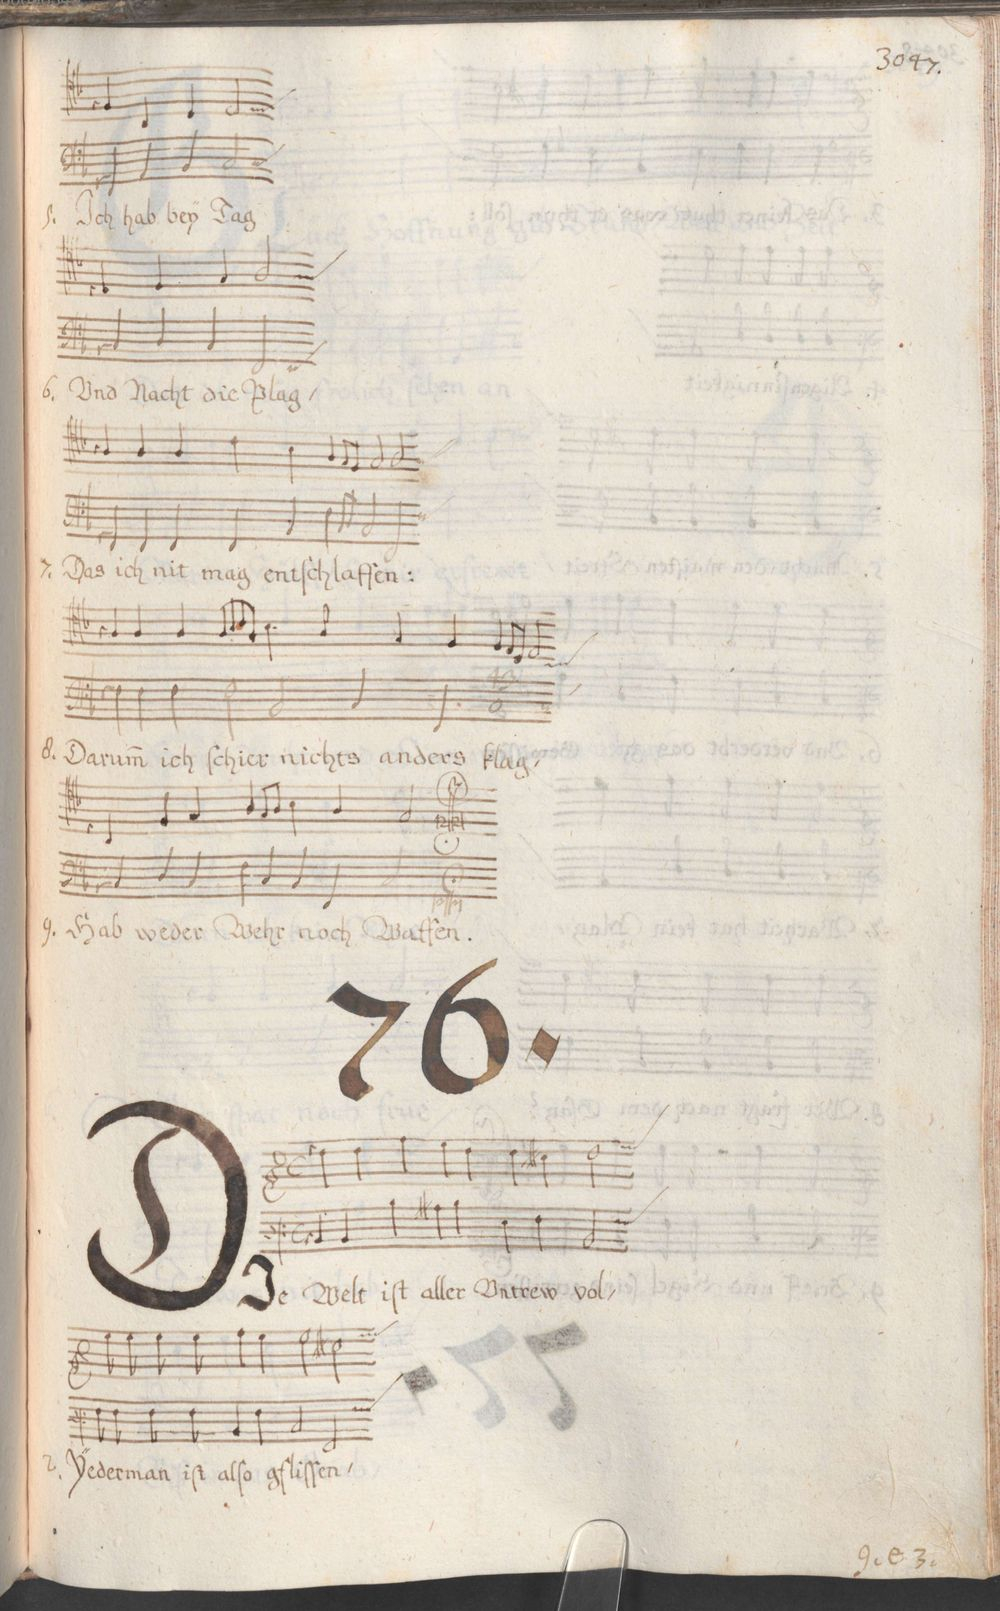 3047.
5. Ich hab beÿ Tag
6. Vnd Nacht die Plag /
7. Das ich nit mag entschlaffen :
8. Darum̄ ich schier nichts anders klag /
9. Hab weder Wehr noch Waffen.
76.
DJe Welt ist aller Vntrew vol /
2. Ÿederman ist also gflissen /
9. e 3.